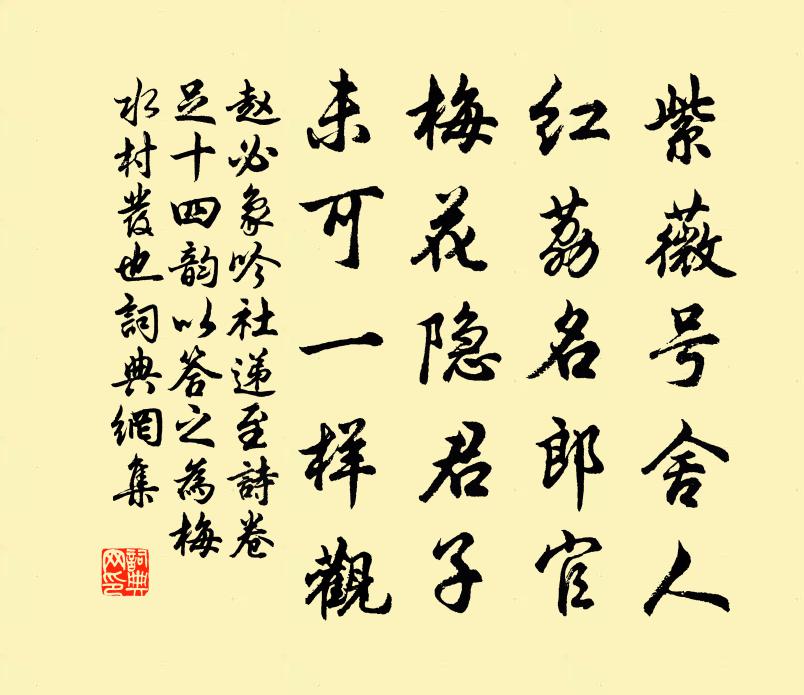 紫薇号舍人
红荔名郎官
梅花隐君子
未可一样觀
赵必象吟社递至詩卷
足十四韵以答之為梅
水村發也詞典網集
詞典网印